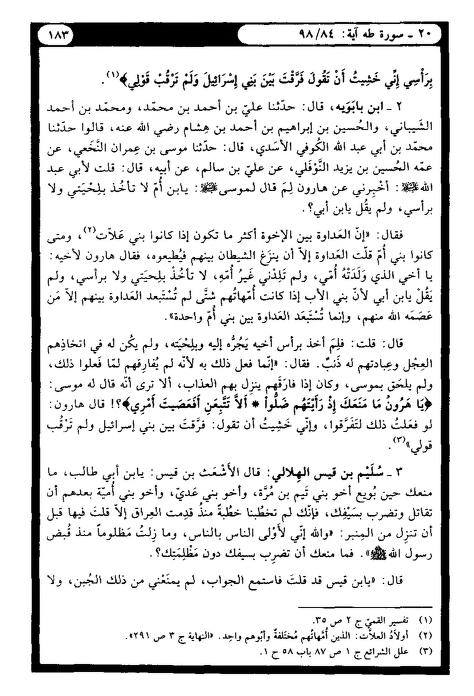 ٢٠ ـ سورة طه آية: ٩٨/٨٤
١٨٣
بِرَأْسِي إِنِّي خَشِيتُ أَنْ تَقُولَ فَرَّقْتَ بَيْنَ بَنِي إِسْرَائِيلَ وَلَمْ تَرْقُبْ قَوْلِي﴾(١).
٢ ـ ابن بابَوَيه، قال: حدّثنا عليّ بن أحمد بن محمّد، ومحمّد بن أحمد
الشيباني، والحُسين بن إبراهيم بن أحمد بن هِشام رضي الله عنه، قالوا حدّثنا
محمّد بن أبي عبد الله الكُوفي الأسَدي، قال: حدّثنا موسى بن عِمران النَّخَعي، عن
عمّه الحُسين بن يزيد النَّوْفَلي، عن عليّ بن سالم، عن أبيه، قال: قلت لأبي عبد
الله ﷺ: أخْبِرني عن هارون لِمَ قال لموسى ﷺ: يابن أُمّ لا تأخُذ بلِحْيَتي ولا
برأسي، ولم يقُل يابن أبي؟.
فقال: «إنّ العَداوة بين الإخوة أكثر ما تكون إذا كانوا بني عَلاّت(٢)، ومتى
كانوا بني أُمّ قلّت العَداوة إلاّ أن ينزَغ الشيطان بينهم فيُطيعوه، فقال هارون لأخيه:
يا أخي الذي وَلَدَتْهُ أُمّي، ولم تَلِدْني غَيرُ أُمّهِ، لا تأخُذْ بلِحيَتي ولا برأسي، ولم
يَقُلْ يابن أبي لأنّ بني الأب إذا كانت أُمّهاتُهم شتَّى لم تُسْتَبعد العَداوة بينهم إلاّ مَن
عَصَمَه الله منهم، وإنما تُسْتَبعَد العَداوة بين بني أُمّ واحدة».
قال: قلت: فلِمَ أخذ برأس أخيه يَجُرُّه إليه وبلِحْيَته، ولم يكُن له في اتخاذِهم
العِجْل وعِبادتهم له ذَنبٌ. فقال: «إنّما فعل ذلك به لأنّه لم يُفارِقهم لمّا فَعلوا ذلك،
ولم يلحَق بموسى، وكان إذا فارَقَهم ينزِل بهم العذاب، ألا ترى أنّه قال له موسى:
﴿يَا هَرُونُ مَا مَنَعَكَ إِذْ رَأَيْتَهُم ضَلُّواْ * أَلاَّ تَتَّبِعَنِ أَفَعَصَيْتَ أَمْرِي﴾؟! قال هارون:
لو فعلتُ ذلك لتَفَرَّقوا، وإنّي خَشِيتُ أن تقول: فرَّقت بين بني إسرائيل ولم تَرْقُبْ
قولي»(٣).
٣ ـ سُلَيْم بن قيس الهِلالي: قال الأشْعَث بن قيس: يابن أبي طالب، ما
منعك حين بُويع أخو بني تَيم بن مُرَّة، وأخو بني عَديّ، وأخو بني أُميّة بعدهم أن
تقاتل وتضرب بسَيْفِك، فإنّك لم تخطُبنا خطْبةً منذُ قدِمت العِراق إلاّ قلتَ فيها قبل
أن تنزل من المِنبر: «والله إني لأوْلى الناس بالناس، وما زِلتُ مَظلوماً منذُ قُبض
رسول الله ﷺ». فما منعك أن تضرِب بسيفك دون مَظْلِمَتِك؟.
قال: «يابن قيس قد قلتَ فاستمع الجواب، لم يمنَعْني من ذلك الجُبن، ولا
(١) تفسير القميّ ج ٢ ص ٣٥.
(٢) أولادُ العلاّت: الذين أُمّهاتُهم مُختلفةٌ وأبُوهم واحِد. «النهاية ج ٣ ص ٢٩١».
(٣) علل الشرائع ج ١ ص ٨٧ باب ٥٨ ح ١.